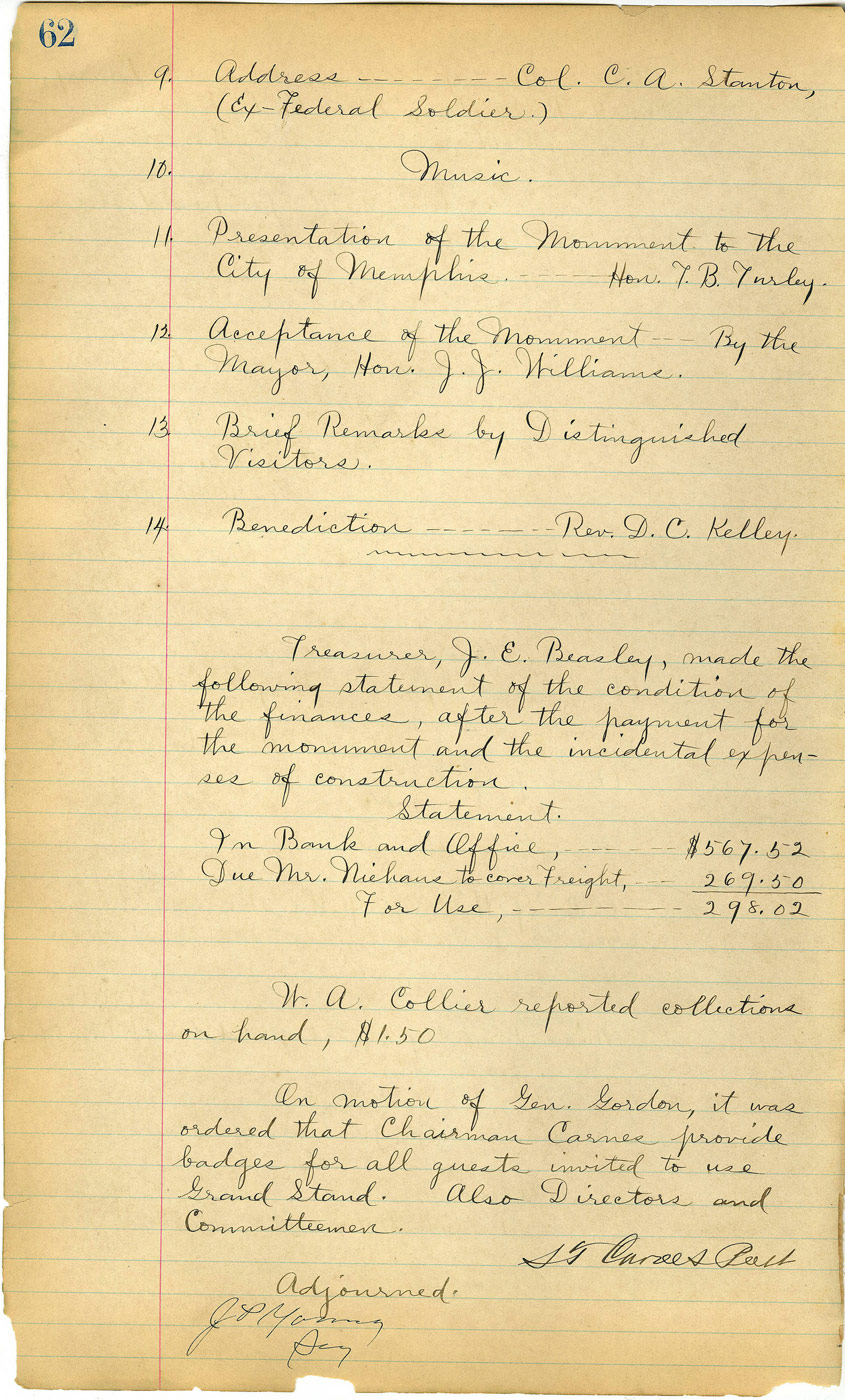 62
9. Address -------- Col. C. A. Stanton,
(Ex-Federal Soldier.)
10. Music.
11. Presentation of the Monument to the
City of Memphis. ------ Hon. T. B. Turley.
12. Acceptance of the Monument --- By the
Mayor, Hon. J. J. Williams.
13. Brief Remarks by Distinguished
Visitors.
14. Benediction -------- Rev. D. C. Kelley.
Treasurer, J. E. Beasley, made the
following statement of the condition of
the finances, after the payment for
the monument and the incidental expen-
ses of construction.
Statement.
In Bank and Office, ------ $567.52
Due Mr. Niehaus to cover Freight, --- 269.50
For Use, --------- 298.02
W. A. Collier reported collections
on hand, $1.50
On motion of Gen. Gordon, it was
ordered that Chairman Carnes provide
badges for all guests invited to use
Grand Stand. Also Directors and
Committeemen.
S T Carnes Prest
Adjourned.
J P Young
Secy